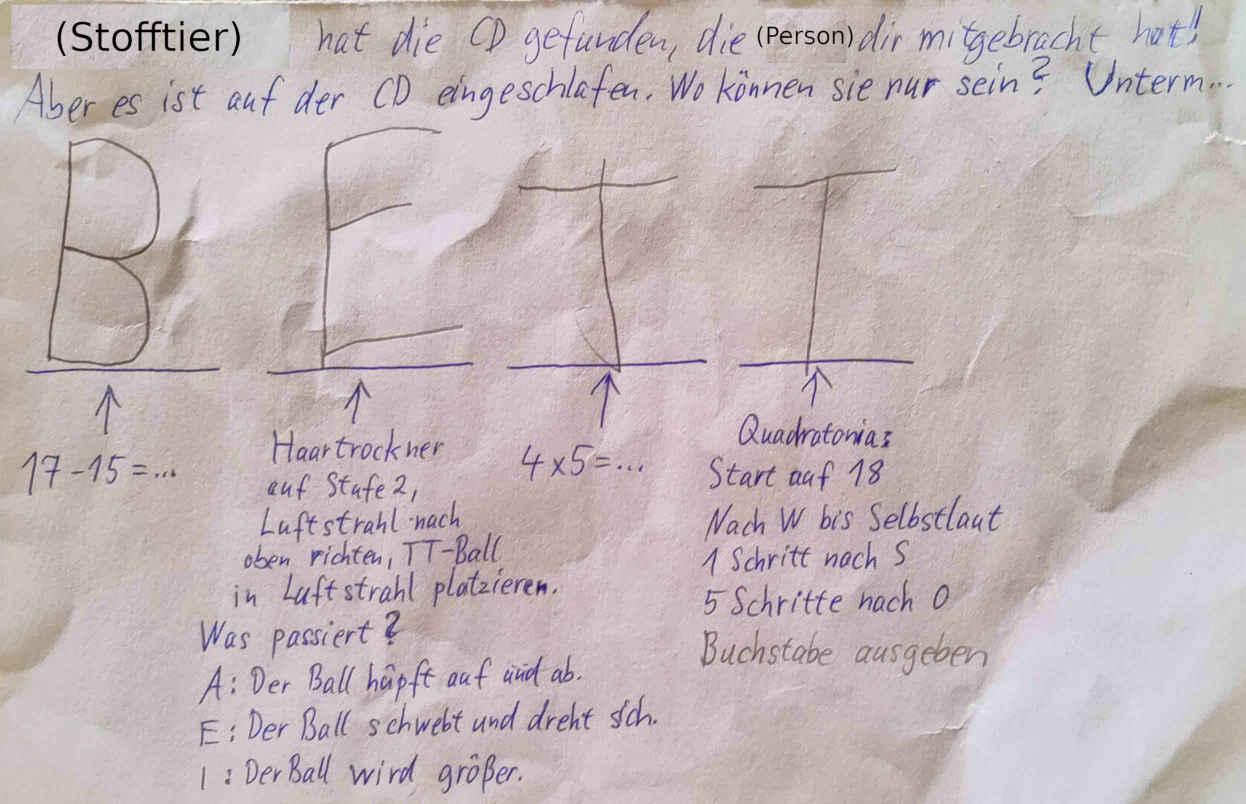 (Stofftier) hat die CD gefunden, die (Person) dir mitgebracht hat!
Aber es ist auf der CD eingeschlafen. Wo können sie nur sein? Unterm...
B E T T
17-15=...
Haartrockner
auf Stufe 2,
Luftstrahl nach
oben richten, TT-Ball
in Luftstrahl platzieren.
Was passiert?
A: Der Ball hüpft auf und ab.
E: Der Ball schwebt und dreht sich.
I: Der Ball wird größer.
4x5=...
Quadratonia:
Start auf 18
Nach W bis Selbstlaut
1 Schritt nach S
5 Schritte nach O
Buchstabe ausgeben